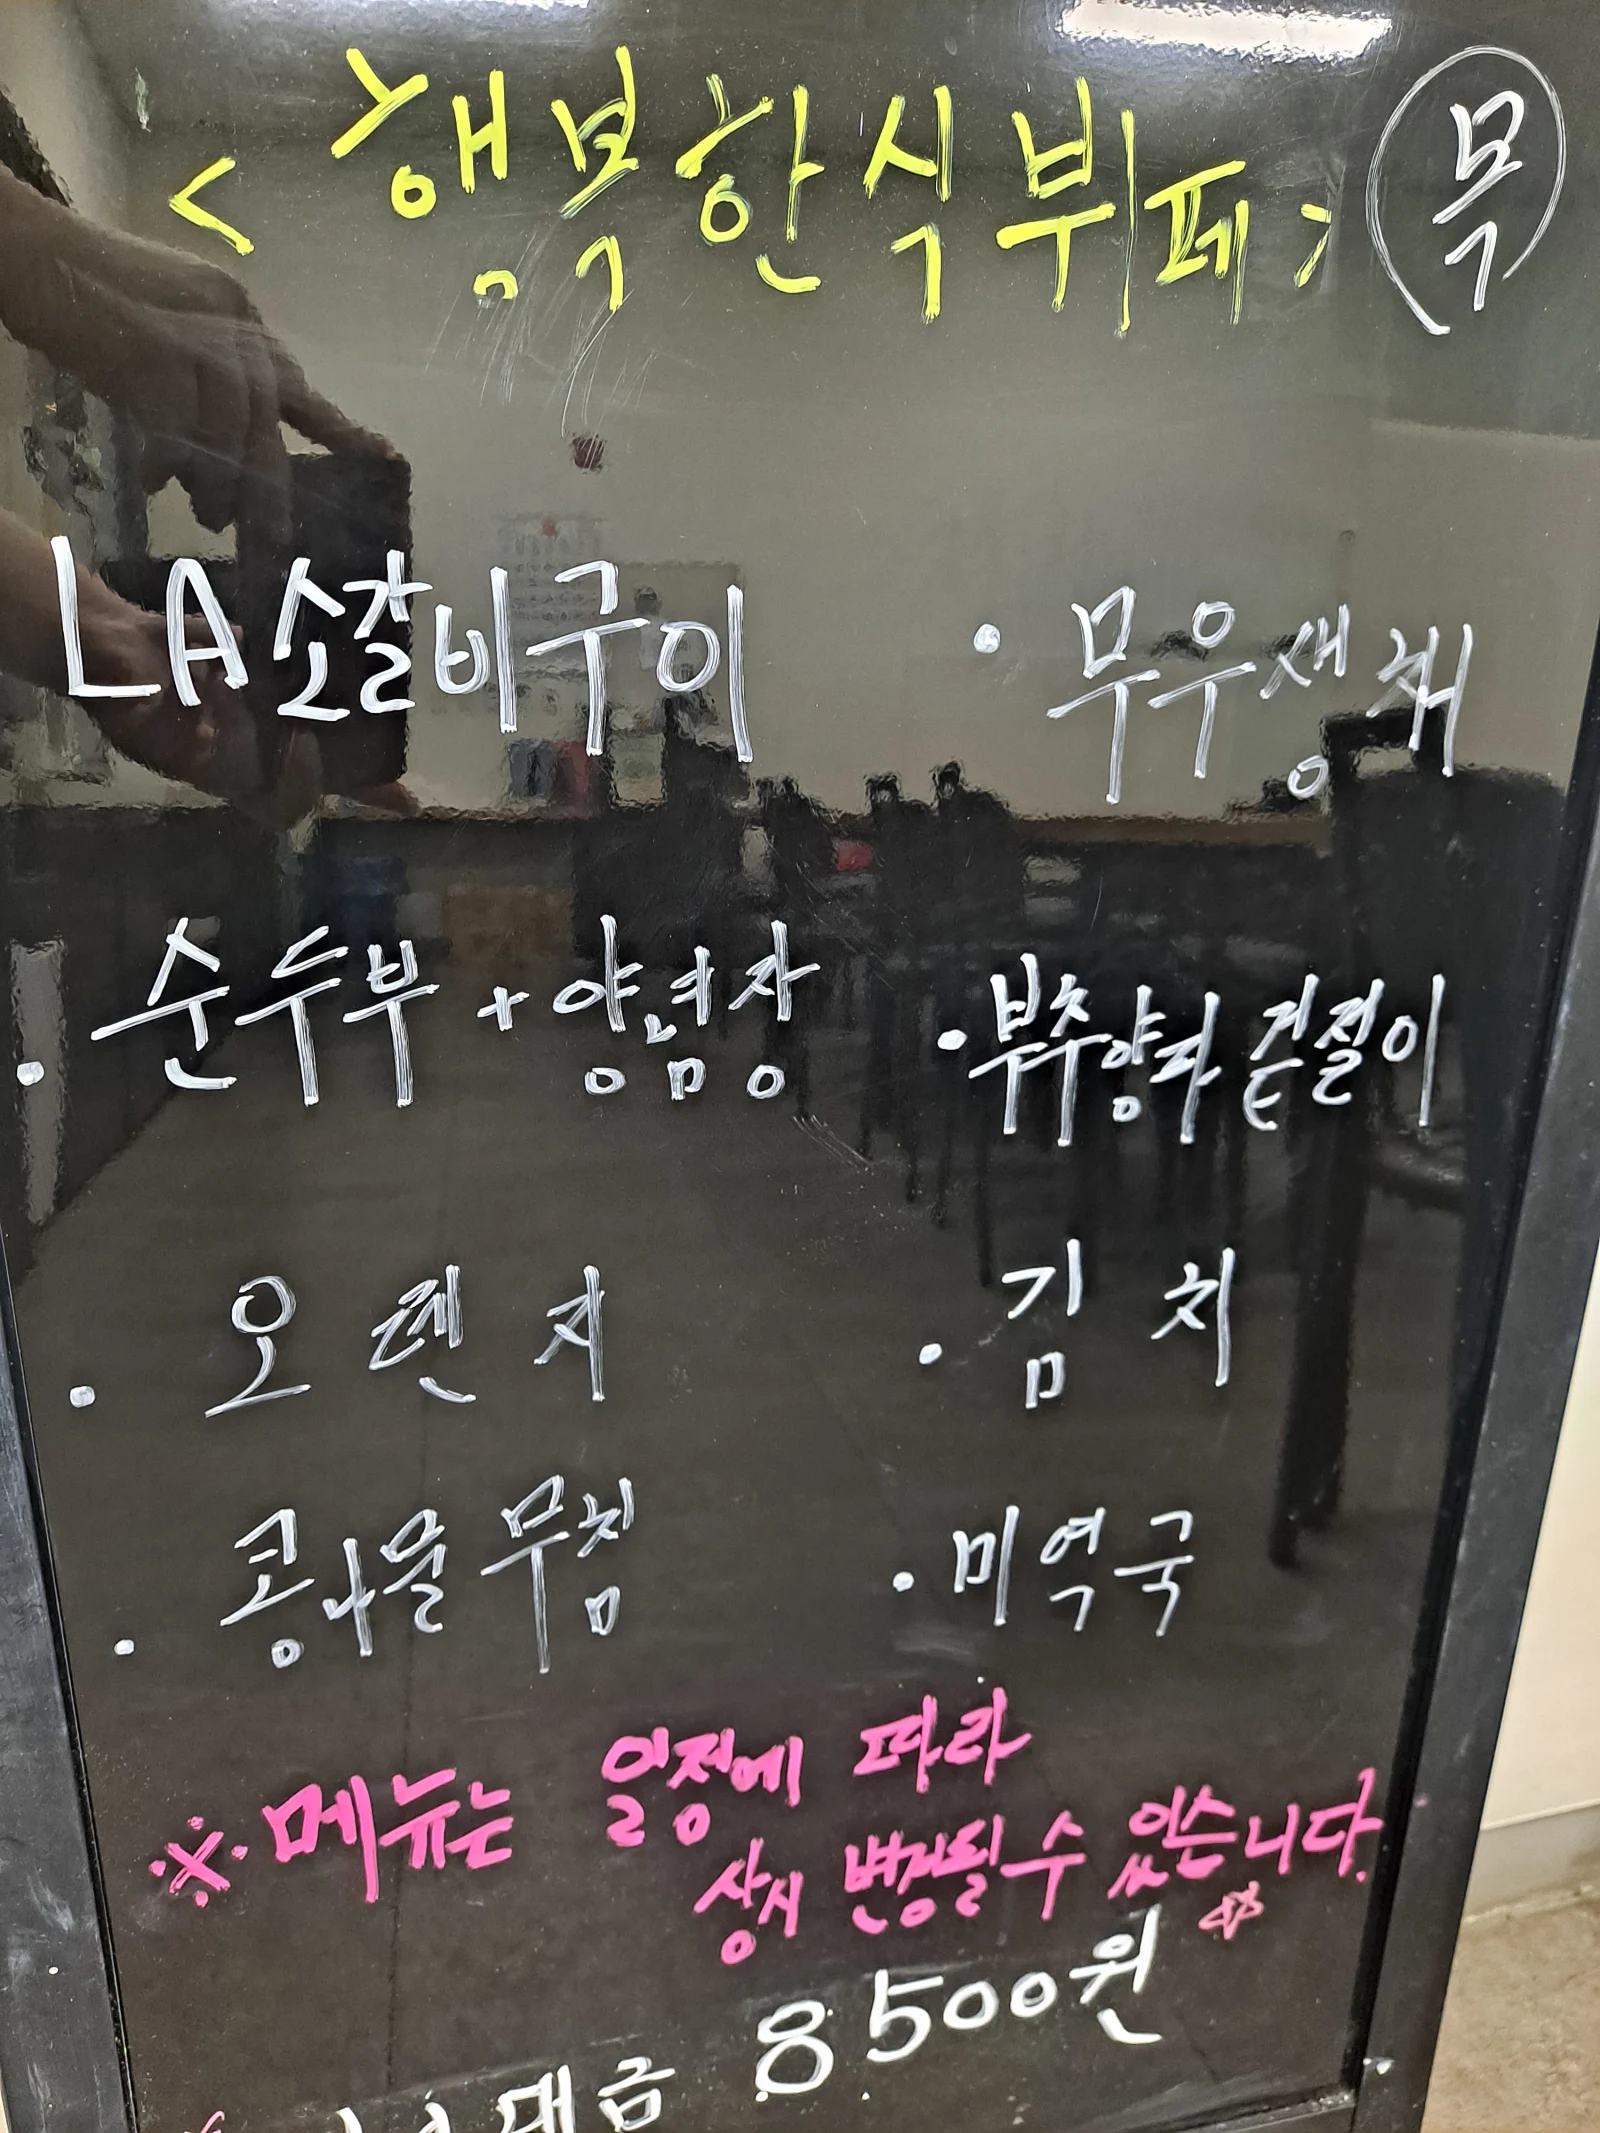 <행복한식뷔페> 목
LA소갈비구이
• 무우생채
• 순두부 + 양념장
• 부추양파 겉절이
• 오렌지
• 김치
• 콩나물무침
• 미역국
※ 메뉴는 일정에 따라
상시 변경될 수 있습니다. ☆
대금 8500원